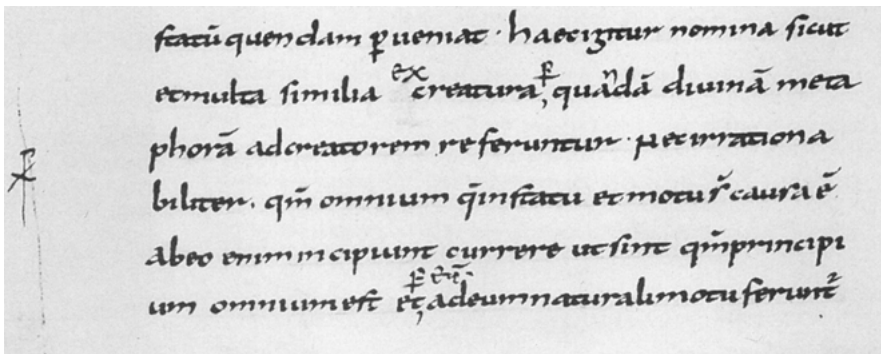 statū quendam ꝑueniat · haec igitur nomina sicut
et multa similia ex creatura ꝑ quādā diuinā meta
phorā ad creatorem referuntur · nec irrationa
biliter · qm̄ omnium q̄ in statu et motu s̄ causa ē
ab eo enim incipiunt currere ut sint qm̄ principi
um omnium est et ꝑ eū ad eum naturali motu ferunt᷑